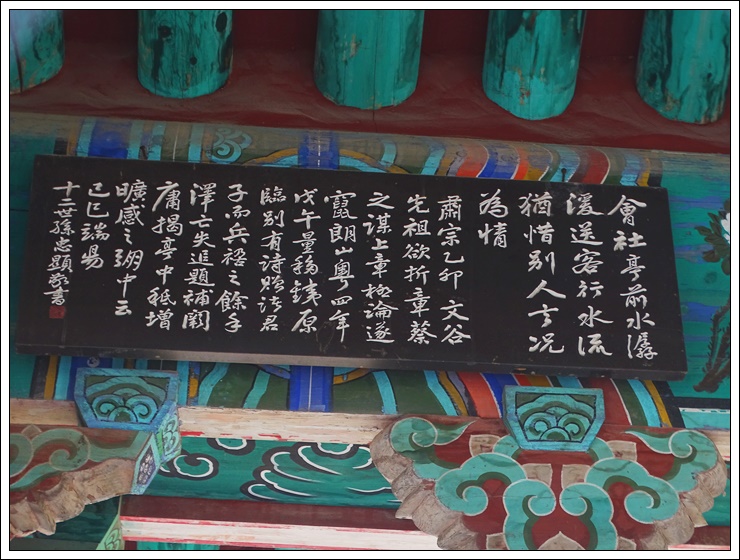 會社亭前水潺
湲送客行水流
猶惜別人去況
為情
肅宗乙卯 文谷
先祖欲折章蔡
之謀上章極論遂
竄朗山粵四年
戊午量移鐵原
臨別有詩贈諸君
子而兵燹之餘手
澤亡失追題補闕
庸揭亭中秪增
曠感之 中云
己巳端陽
十二世孫忠顯敬書